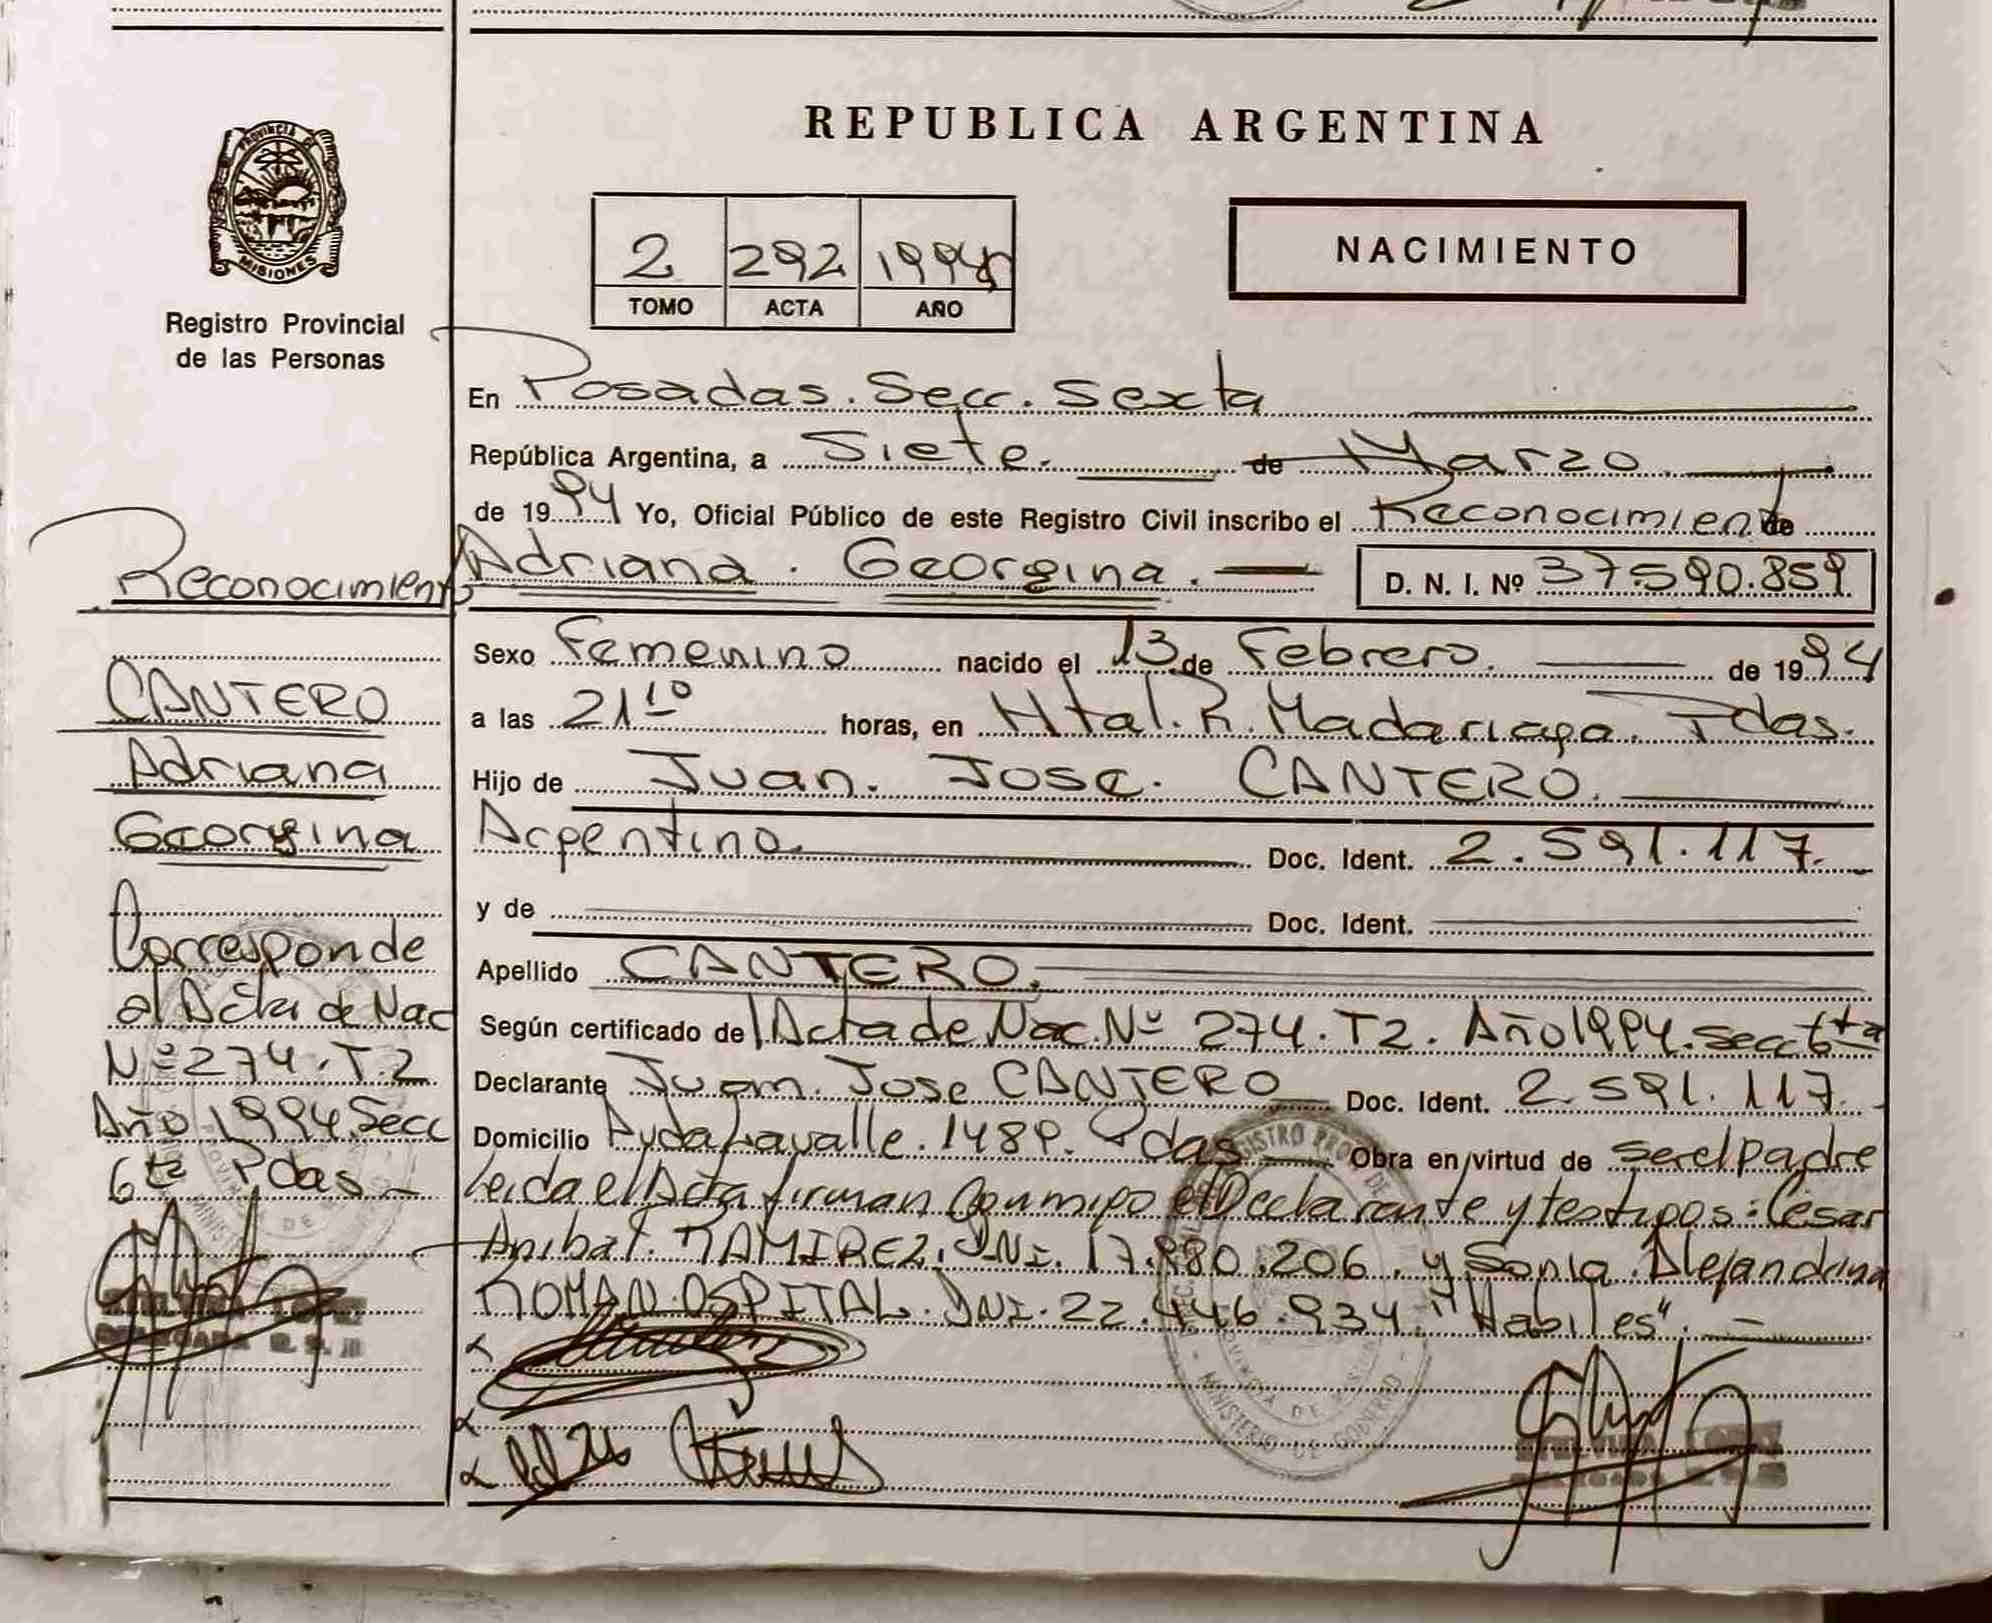 REPUBLICA ARGENTINA
PROVINCIA DE
MISIONES
Registro Provincial
de las Personas
2 292 1994
TOMO ACTA AÑO
NACIMIENTO
En Posadas. Secc. Sexta
República Argentina, a Siete. de Marzo.
de 1994 Yo, Oficial Público de este Registro Civil inscribo el Reconocimiento de
Adriana. Georgina. D. N. I. Nº 37.590.859
Sexo Femenino nacido el 13 de Febrero. de 1994
a las 21¹⁰ horas, en Htal. R. Madariaga. Pdas.
Hijo de Juan. Jose. CANTERO.
Argentino. Doc. Ident. 2.591.117.
y de Doc. Ident.
Apellido CANTERO.
Según certificado de l Acta de Nac. Nº 274. T2. Año 1994. Secc 6ta
Declarante Juan. Jose CANTERO Doc. Ident. 2.591.117.
Domicilio Ayda Lavalle. 1489. Pdas Obra en virtud de ser el padre
Leida el Acta firman conmigo el Declarante y testigos: César
Anibal. RAMIREZ. DNI. 17.980.206. y Sonia. Alejandrina
ROMAN. OSPITAL. DNI. 22.446.934. "Habiles".
Reconocimiento
CANTERO
Adriana
Georgina
Corresponde
al Acta de Nac
Nº 274. T.2
Año 1994. Secc
6ta Pdas
MINISTERIO DE GOBIERNO